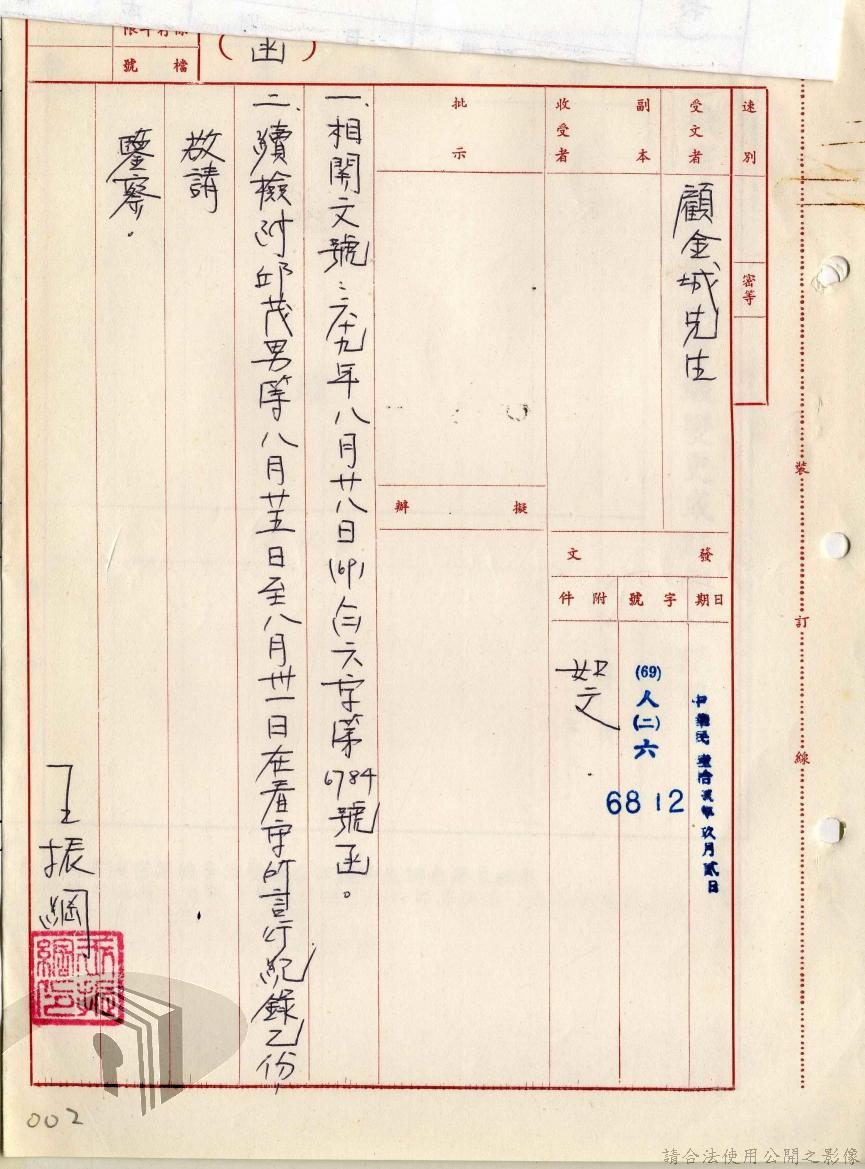 檔號
保存年限
（函）
速別
密等
受文者
顧金城先生
副本
收受者
發文
日期
字號
附件
中華民國 玖月貳日
(69)
人
(二)
六
6812
如文
批示
擬辦
一、相關文號：六十九年八月廿八日(69)人(二)六字第6784號函。
二、續檢附邱茂男等八月廿五日至八月卅一日在看守所言行紀錄乙份，
敬請
鑒察。
王振綱
裝
訂
線
002
請合法使用公開之影像